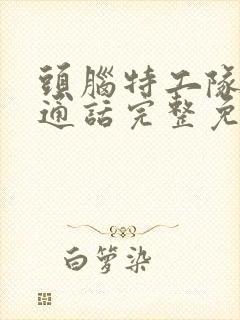 頭腦特工隊
通話完整免
白箩染